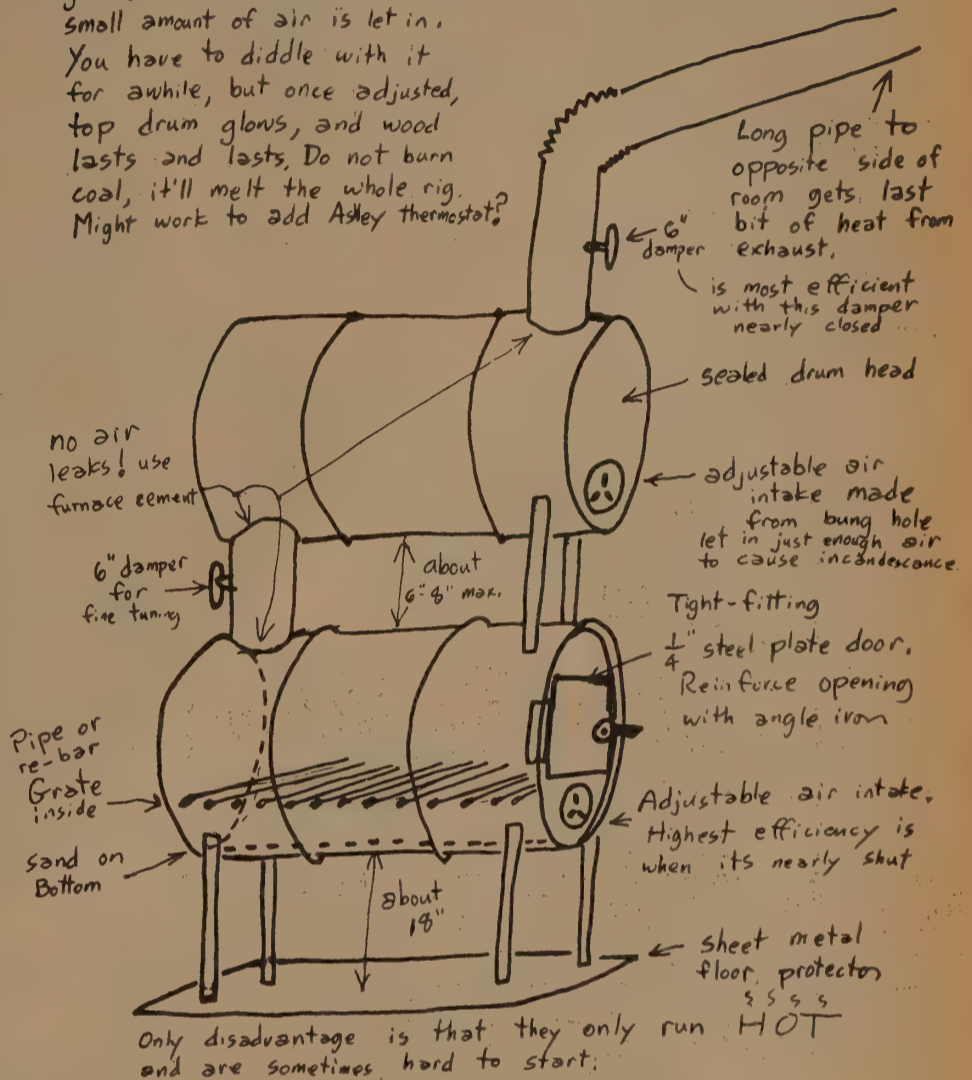 small amount of air is let in.
You have to diddle with it
for awhile, but once adjusted,
top drum glows, and wood
lasts and lasts. Do not burn
coal, it'll melt the whole rig.
Might work to add Ashley thermostat?
Long pipe to
opposite side of
room gets last
bit of heat from
exhaust.
6"
damper
is most efficient
with this damper
nearly closed
sealed drum head
no air
leaks! use
furnace cement
adjustable air
intake made
from bung hole
let in just enough air
to cause incandescance.
6" damper
for
fine tuning
about
6"-8" max.
Tight-fitting
1/4" steel plate door.
Reinforce opening
with angle iron
Pipe or
re-bar
Grate
inside
Adjustable air intake.
Highest efficiency is
when its nearly shut
sand on
Bottom
about
18"
sheet metal
floor protector
Only disadvantage is that they only run HOT
and are sometimes hard to start.